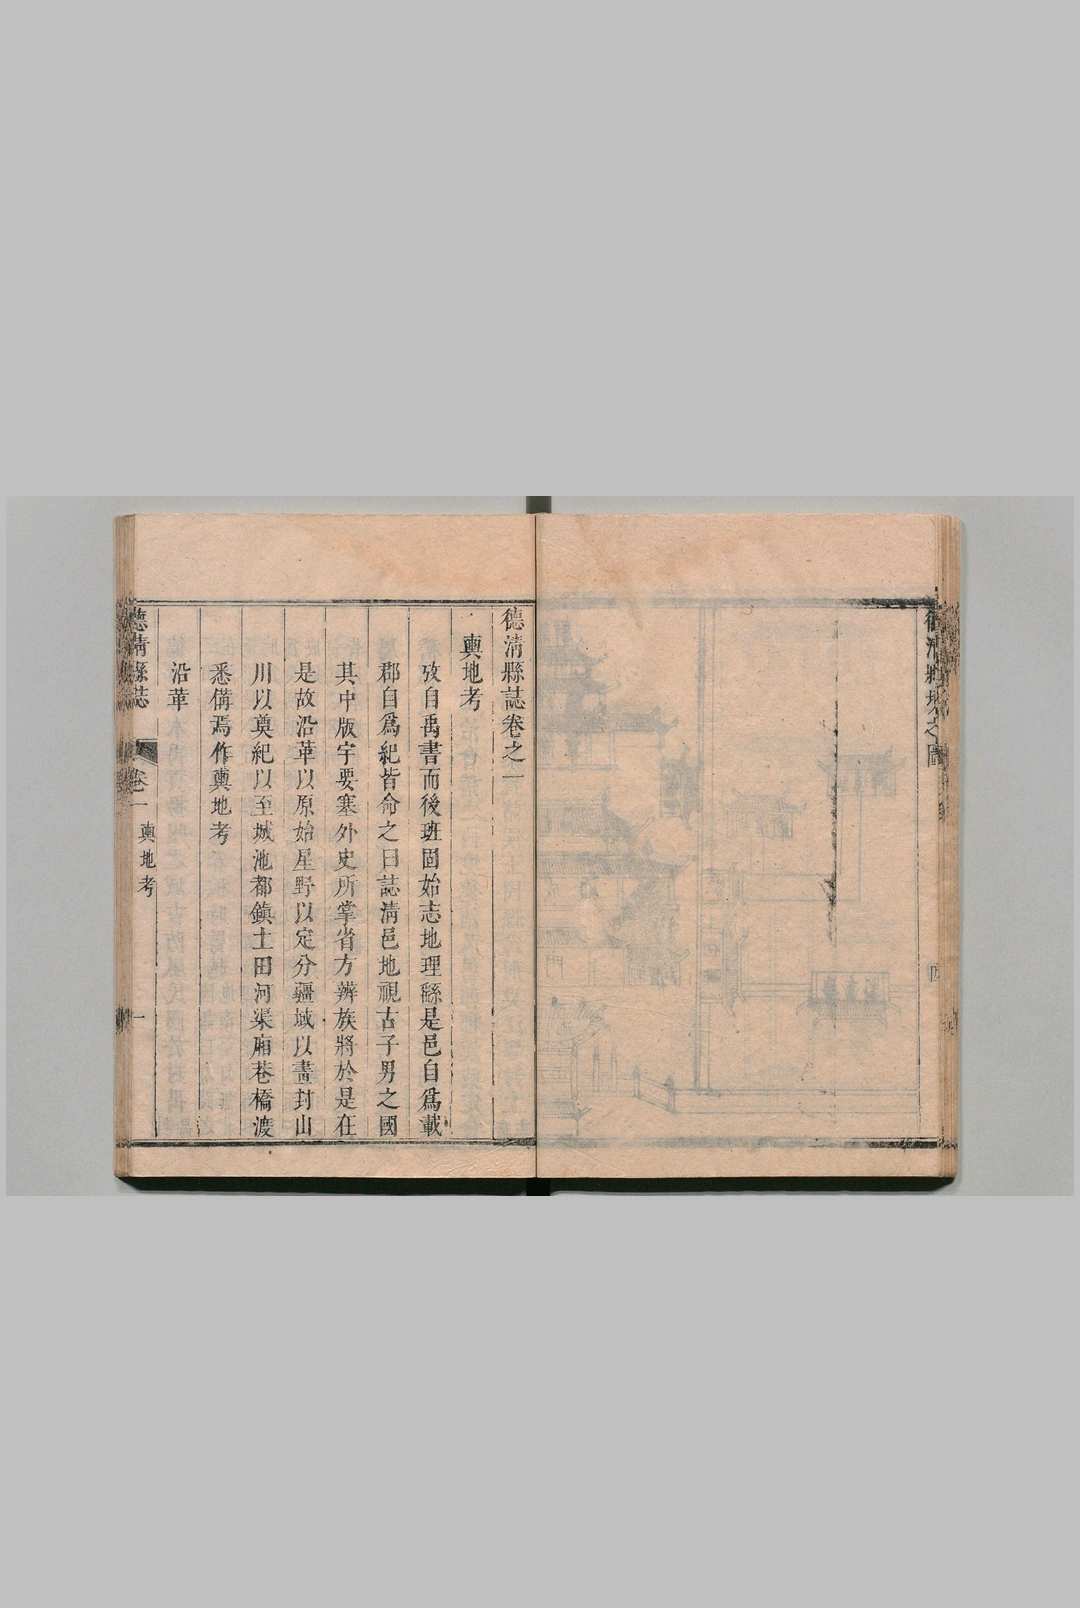 德清縣誌卷之一
輿地考
攷自禹書而後班固始志地理繇是邑自爲載
郡自爲紀皆命之曰誌清邑地視古子男之國
其中版宇要塞外史所掌省方辨族將於是在
是故沿革以原始星野以定分疆域以畫封山
川以奠紀以至城池都鎮土田河渠廂巷橋渡
悉備焉作輿地考
沿革
德清縣誌
卷一
輿地考
一